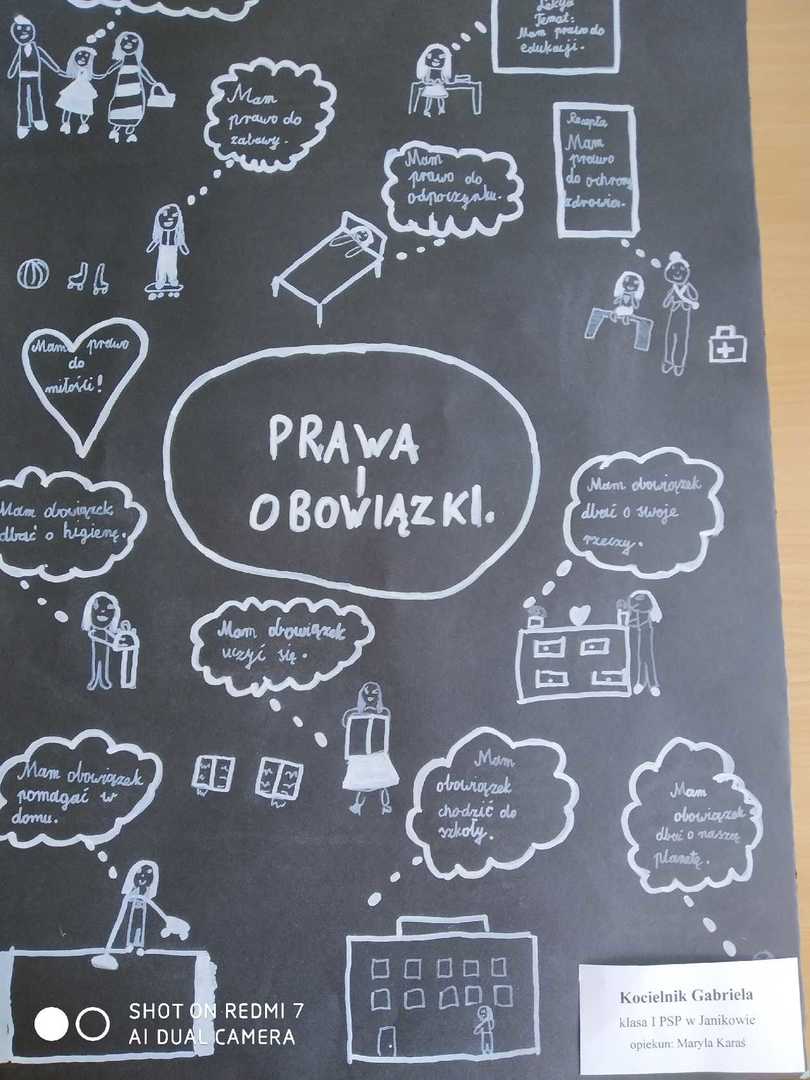 Lekcja
Temat:
Mam prawo do
edukacji.
Mam
prawo do
zabawy.
Recepta
Mam
prawo
do ochrony
zdrowia.
Mam
prawo do
odpoczynku.
Mam prawo
do
miłości!
PRAWA
I
OBOWIĄZKI.
Mam obowiązek
dbać o higienę.
Mam obowiązek
dbać o swoje
rzeczy.
Mam obowiązek
uczyć się.
Mam obowiązek
pomagać w
domu.
Mam
obowiązek
chodzić do
szkoły.
Mam
obowiązek
dbać o naszą
planetę.
Kocielnik Gabriela
klasa I PSP w Janikowie
opiekun: Maryla Karaś
SHOT ON REDMI 7
AI DUAL CAMERA